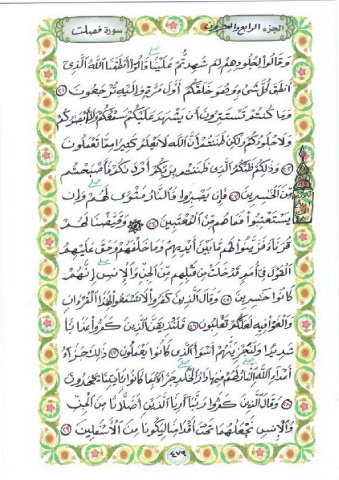 الجزء الرابع والعشرون
سورة فصلت
وَقَالُوا لِجُلُودِهِمْ لِمَ شَهِدتُّمْ عَلَيْنَا قَالُوا أَنطَقَنَا اللَّهُ الَّذِي
أَنطَقَ كُلَّ شَيْءٍ وَهُوَ خَلَقَكُمْ أَوَّلَ مَرَّةٍ وَإِلَيْهِ تُرْجَعُونَ ٢١
وَمَا كُنتُمْ تَسْتَتِرُونَ أَن يَشْهَدَ عَلَيْكُمْ سَمْعُكُمْ وَلَا أَبْصَارُكُمْ
وَلَا جُلُودُكُمْ وَلَٰكِن ظَنَنتُمْ أَنَّ اللَّهَ لَا يَعْلَمُ كَثِيرًا مِّمَّا تَعْمَلُونَ
٢٢ وَذَٰلِكُمْ ظَنُّكُمُ الَّذِي ظَنَنتُم بِرَبِّكُمْ أَرْدَاكُمْ فَأَصْبَحْتُم
مِّنَ الْخَاسِرِينَ ٢٣ فَإِن يَصْبِرُوا فَالنَّارُ مَثْوًى لَّهُمْ وَإِن
يَسْتَعْتِبُوا فَمَا هُم مِّنَ الْمُعْتَبِينَ ٢٤ ۞ وَقَيَّضْنَا لَهُمْ
قُرَنَاءَ فَزَيَّنُوا لَهُم مَّا بَيْنَ أَيْدِيهِمْ وَمَا خَلْفَهُمْ وَحَقَّ عَلَيْهِمُ
الْقَوْلُ فِي أُمَمٍ قَدْ خَلَتْ مِن قَبْلِهِم مِّنَ الْجِنِّ وَالْإِنسِ إِنَّهُمْ
كَانُوا خَاسِرِينَ ٢٥ وَقَالَ الَّذِينَ كَفَرُوا لَا تَسْمَعُوا لِهَٰذَا الْقُرْآنِ
وَالْغَوْا فِيهِ لَعَلَّكُمْ تَغْلِبُونَ ٢٦ فَلَنُذِيقَنَّ الَّذِينَ كَفَرُوا عَذَابًا
شَدِيدًا وَلَنَجْزِيَنَّهُمْ أَسْوَأَ الَّذِي كَانُوا يَعْمَلُونَ ٢٧ ذَٰلِكَ جَزَاءُ
أَعْدَاءِ اللَّهِ النَّارُ لَهُمْ فِيهَا دَارُ الْخُلْدِ جَزَاءً بِمَا كَانُوا بِآيَاتِنَا يَجْحَدُونَ
٢٨ وَقَالَ الَّذِينَ كَفَرُوا رَبَّنَا أَرِنَا الَّذَيْنِ أَضَلَّانَا مِنَ الْجِنِّ
وَالْإِنسِ نَجْعَلْهُمَا تَحْتَ أَقْدَامِنَا لِيَكُونَا مِنَ الْأَسْفَلِينَ ٢٩
٤٧٩